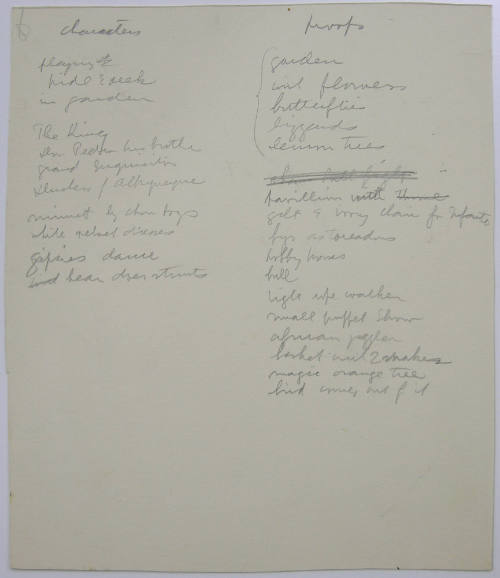 characters
playing of
hide & seek
in garden
The King
Don Pedro his brother
grand Inquisitor
Duchess of Albuquerque
minuet by choir boys
white velvet dresses
gipsies dance
and bear does stunts
props
garden
with flowers
butterflies
lizzards
lemon trees
chair
pavillion with throne
gold & ivory chair for Infanta
boys as toreadors
hobby horses
bull
tight rope walker
small puppet show
african juggler
basket with 2 snakes
magic orange tree
bird comes out of it